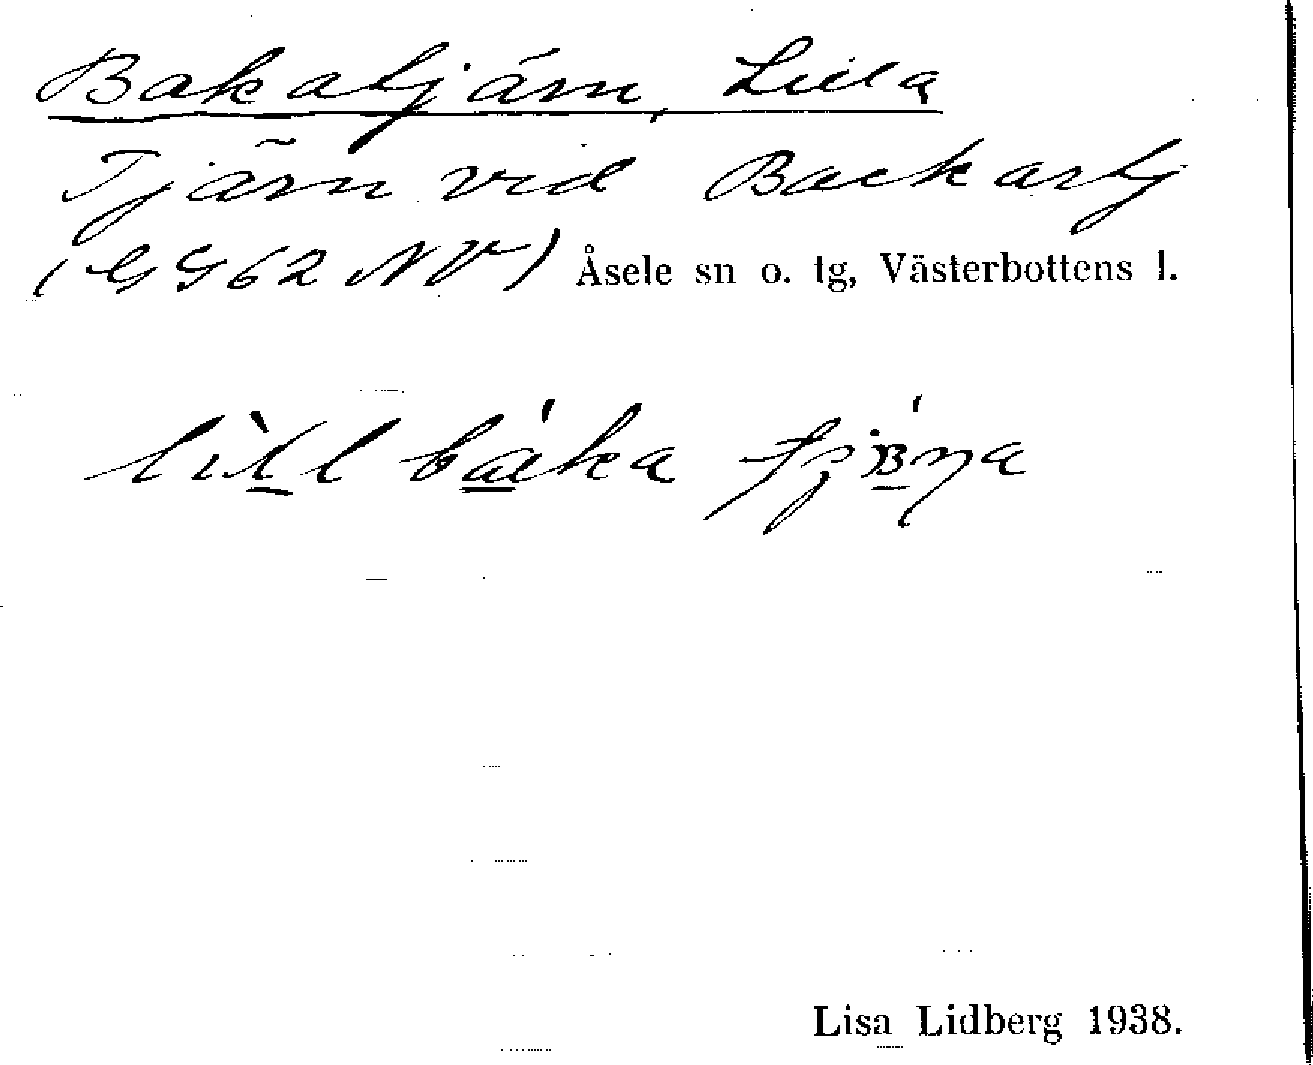 Bakatjärn, Lilla
Tjärn vid Backarlj
(GS62 NV) Åsele sn o. tg, Västerbottens l.
lill baka
Lisa Lidberg 1938.